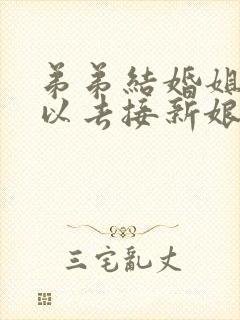 弟弟結婚姐
以去接新娘
三宅亂丈